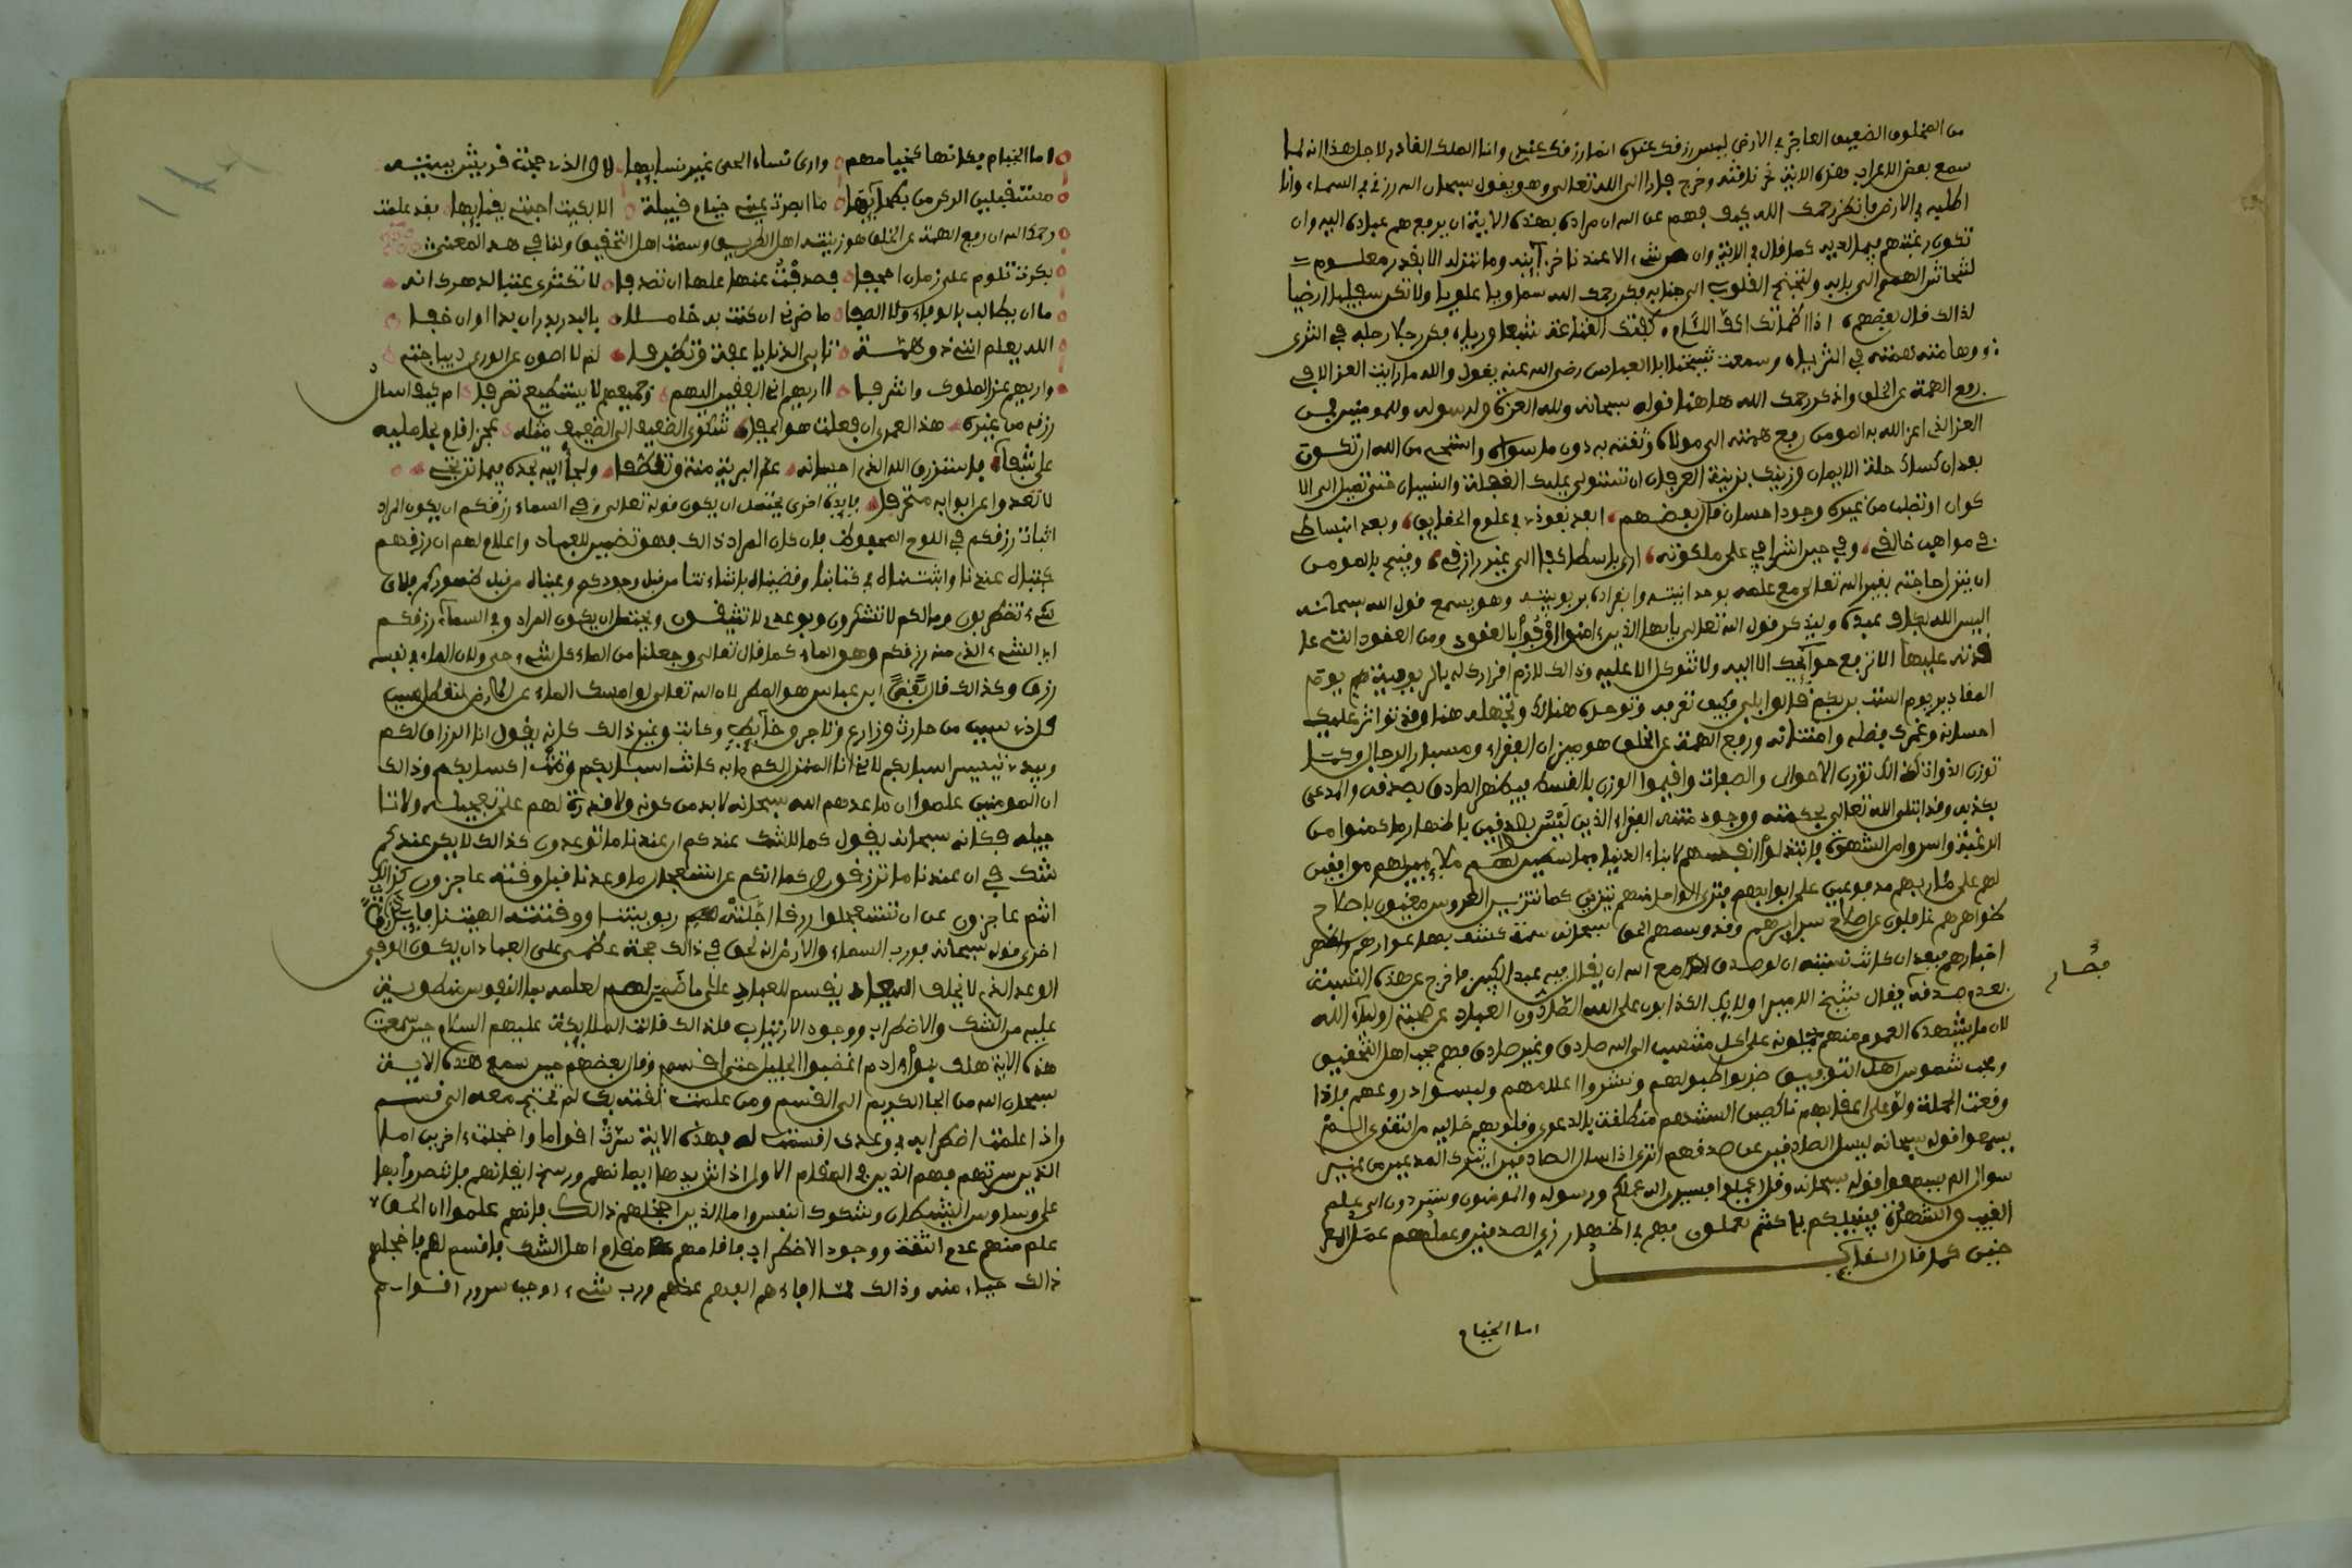 من المخلوق الضعيف العاجز في الارض ليس رزقك عنده انما رزقك عندي وانا الملك القادر لاجل هذا انه لما
سمع بعض الاعراب هذه الاية نحر ناقته وخرج فارا الى الله تعالى وهو يقول سبحان الله رزقي في السماء وانا
اطلبه في الارض فانظر رحمك الله كيف فهم عن الله ان مراده بهذه الاية ان يرفع همم عباده اليه وان
تكون رغبتهم فيما لديه كما قال في الاية وان من شيء الا عندنا خزآينه وما ننزله الا بقدر معلوم
لتنحاش الهمم الى بابه ولتجنح القلوب الى جنابه فكن رحمك الله سماويا علويا ولا تكن سفليا ارضيا
لذالك قال بعضهم اذا اظمأتك اكف اللئام كفتك القناعة شبعا وريا فكن رجلا رجله في الثرى
وهامة همته في الثريا وسمعت شيخنا ابا العباس رضي الله عنه يقول والله ما رايت العز الا في
رفع الهمة عن الخلق واذكر رحمك الله هاهنا قوله سبحانه ولله العزة ولرسوله وللمومنين فمن
العز الذي اعز الله به المومن رفع همته الى مولاه وثقته به دون ما سواه واستحي من الله ان تكون
بعد ان كساك حلة الايمان وزينك بزينة العرفان ان تستولي عليك الغفلة والنسيان حتى تميل الى الا
كوان او تطلب من غيره وجود احسان قال بعضهم ابعد نفوذي في علوم الحقايق وبعد انبساطي
في مواهب خالقي وفي حين اشرافي على ملكوته ارى باسطا كفا الى غير رازقي وقبيح بالمومن
ان ينزل حاجته بغير الله تعالى مع علمه بوحدانيته وانفراده بربوبيته وهو يسمع قول الله سبحانه
اليس الله بكاف عبده وليذكر قول الله تعالى يايها الذين ءامنوا اوفوا بالعقود ومن العقود التي عا
قدته عليها الا ترفع حوآئجك الا اليه ولا تتوكل الا عليه وذالك لازم اقرارك له بالربوبية يوم
المقادير يوم الست بربكم قالوا بلى وكيف تعرفه وتوحده هناك وتجهله هنا وقد تواتر عليك
احسانه وغمرك فضله وامتنانه ورفع الهمة عن الخلق هو ميزان الفقراء ومسبار الرجال وكما
توزن الذوات كذالك توزن الاحوال والصفات واقيموا الوزن بالقسط فيظهر الصادق بصدقه والمدعي
بكذبه وقد ابتلى الله تعالى بحكمته ووجود منته الفقراء الذين ليسوا بصادقين باظهار ما كمنوا من
الرغبة واسروا من الشهوة فابتذلوا انفسهم لابناء الدنيا مباسطين لهم ملايمين لهم موافقين
لهم على مئاربهم مدفوعين على ابوابهم فترى الواحد منهم يتزين كما تتزين العروس معنيون باصلاح
ظواهرهم غافلون عن اصلاح سرايرهم وقد وسمهم الحق سبحانه سمة كشف بها عوارهم واظهر
اخبارهم فبعد ان كانت نسبته ان لو صدق مع الله ان يقال فيه عبد الكبير فاخرج عن هذه النسبة
فصار
لعدم صدقه فيقال شيخ الامير اولايك الكذابون على الله الصادون العباد عن صحبة اولياء الله
لان ما يشهده العموم منهم يحملونه على كل منتسب الى الله صادق وغير صادق فهم حجب اهل التحقيق
وحجب شموس اهل التوفيق ضربوا طبولهم ونشروا اعلامهم ولبسوا دروعهم فاذا
وقعت الحملة ولوا على اعقابهم ناكصين السنتهم منطلقة بالدعوى وقلوبهم خالية من التقوى الم
يسمعوا قوله سبحانه ليسل الصادقين عن صدقهم اترى اذا سال الصادقين ايترك المدعين من غير
سوال الم يسمعوا قوله سبحانه وقل اعملوا فسيرى الله عملكم ورسوله والمومنون وستردون الى علم
الغيب والشهادة فينبيكم بما كنتم تعملون فهم في اظهار زي الصادقين وعملهم عمل المعر
ضين كما قال القايل
اما الخيام
اما الخيام فانها كخيامهم وارى نساء الحي غير نسايها لا والذي حجت قريش بيته
مستقبلين الركن من بطحآيها ما ابصرت عيني خيام قبيلة الا بكيت احبتي بفنايها فقد علمت
رحمك الله ان رفع الهمة عن الخلق هو زينة اهل الطريق وسمة اهل التحقيق ولنا في هذ المعنى
بكرت تلوم على زمان اجحفا فصدفت عنها علها ان تصدفا لا تكثري عتبا لدهرك انه
ما ان يطالب بالوفاء ولا الصفا ما ضرني ان كنت فيه خاملا فالبدر بدر ان بدا او ان خفا
الله يعلم انني ذو همة تابى الدنايا عفة وتظرفا لم لا اصون عن الورى ديباجتي
واريهم عز الملوك واشرفا اأريهم اني الفقير اليهم وجميعهم لا يستطيع تصرفا ام كيف اسال
رزقه من غيره هذا لعمري ان فعلت هو الجفا شكوى الضعيف الى ضعيف مثله عجز اقام بحامليه
على شفا فاسترزق الله الذي احسانه عم البرية منة وتعطفا والجأ اليه تجده فيما ترتجي
لا تعدوا عن ابوابه متحرفا فايدة اخرى يحتمل ان يكون قوله تعالى وفي السماء رزقكم ان يكون المراد
اثبات رزقكم في اللوح المحفوظ فان كان المراد ذالك فهو تضمين للعباد واعلام لهم ان رزقهم
كتبناه عندنا واثبتناه في كتابنا وقضيناه بارادتنا من قبل وجودكم وعيناه من قبل ظهوركم فلاي
شيء تضطربون وما لكم لا تشكرون وبوعدي لا تثيقون ويحتمل ان يكون المراد وفي السماء رزقكم
اي الشيء الذي منه رزقكم وهو الماء كما قال تعالى وجعلنا من الماء كل شيء حي ولان الماء في نفسه
رزق وكذالك قال ابن عباس هو المطر لان الله تعالى لو امسك الماء عن الارض لتعطل سبب
كل ذي سبب من حارث وزارع وتاجر وخآيط وكاتب وغير ذالك كانه يقول انا الرزاق لكم
وبيدي تيسير اسبابكم لاني انا المنزل لكم ما به كانت اسبابكم وتمت اكسابكم وذالك
ان المومنين علموا ان ما عدهم الله سبحانه لا بد من كونه ولا قدرة لهم على تعجيله ولا تا
جيله فكانه سبحانه يقول كما لا شك عندكم ان عندنا ما توعدون كذالك لا يكن عندكم
شك في ان عندنا ما ترزقون وكما انكم عن استعجال ما وعدنا قبل وقته عاجزون كذالك
انتم عاجزون عن ان تستعجلوا رزقا اجلته ربوبيتنا ووقتته الهيتنا فايدة
اخرى قوله سبحانه فورب السماء والارض انه لحق في ذالك حجة عظمى على العباد ان يكون الوفي
الوعد الذي لا يخلف الميعاد يقسم للعباد على ما ضمن لهم لعلمه بما النفوس منطوية
عليه من الشك والاضطراب ووجود الارتياب فلذالك قالت الملايكة عليهم السلام حين سمعت
هذه الاية هلك بنوا ءادم اغضبوا الجليل حتى اقسم وقال بعضهم حين سمع هذه الاية
سبحان الله من الجا الكريم الى القسم ومن علمت ثقته بك لم تحتج معه الى قسم
واذا علمت اضطرابه في وعدك اقسمت له فهذه الاية سرت اقواما واخجلت ءاخرين اما
الذين سرتهم فهم الذين في المقام الاول اذ اشتد بها ايمانهم ورسخ ايقانهم فانتصروا بها
على وساوس الشيطان وشكوك النفس واما الذين اخجلهم ذالك فانهم علموا ان الحق
علم منهم عدم الثقة ووجود الاضطراب فاقامهم مقام اهل الشك فاقسم لهم فاخجلهم
ذالك حياء منه وذالك مما افادهم الفهم عنهم ورب شيء اوجب سرور اقوام